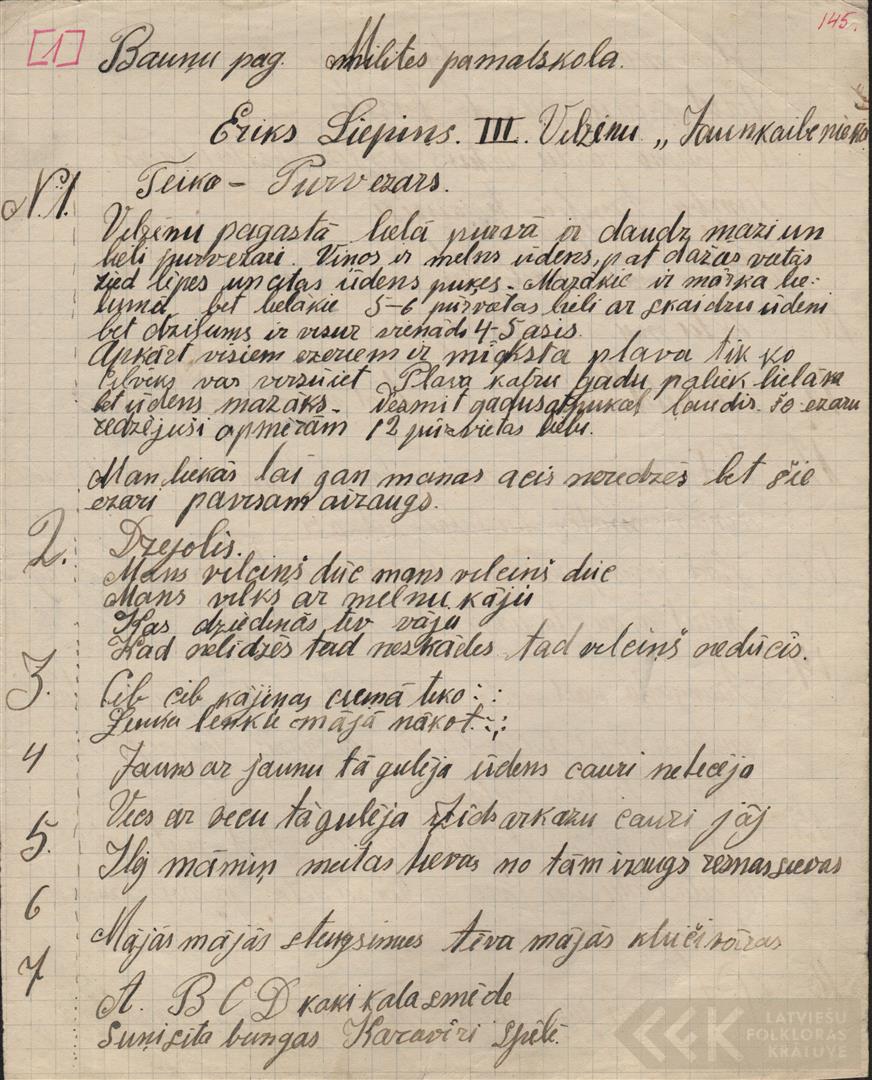 [1]
145.
Bauņu pag. Milites pamatskola.
Eriks Liepins. III. Vilzēnu „Jaunkaibenieki
N. 1. Teika – Purvezars.
Vilzēnu pagastā lielā purvā ir daudz mazi un
lieli purvezari. Viņos ir melns ūdens, pat dažās vietās
zied lēpes un citas ūdens pukes. Mazākie ir mārka lie-
lumā bet lielākie 5-6 pūrvietas lieli ar skaidru ūdeni
bet dziļums ir visur vienāds 4-5 asis.
Apkārt visiem ezeriem ir mīksta plava tik ko
cilvēks var virsū iet Plava katru gadu paliek lielāka
bet ūdens mazāks. Desmit gadus atpukaļ laudis šo ezaru
redzējuši apmēram 12 pūrvietas lielu.
Man liekās lai gan manas acis neredzēs bet šie
ezari pavisam aizaugs.
2. Dzejolis.
Mans vilciņš dūc mans vilciņš dūc
Mans vilks ar melnu kāju
Kas dziedinās tev vāju
Kad nelīdzēs tad neskādēs tad vilciņš nedūcis.
3. Cib cib kājiņas ciemā teko : :
Lenku lenku mājā nākot : :
4 Jauns ar jaunu tā gulēja ūdens cauri netecēja
Vecs ar vecu tā gulēja Žīds ar kazu cauri jāj
5. Ilg māmiņ meitas lievas no tām izaugs resnas sievas
6 Mājās mājās steigsimies tēva mājās kluči vārās
7 A. B C D kaķi kala smēdē
Suņi sita bungas Karavīri spēlē.
LATVIEŠU
FOLKLORAS
KRĀTUVE